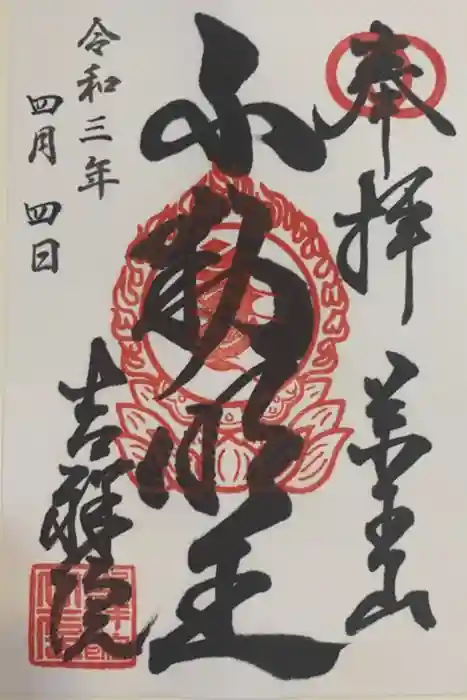 奉拝
薬王山
不動明王
令和三年
四月四日
吉祥院